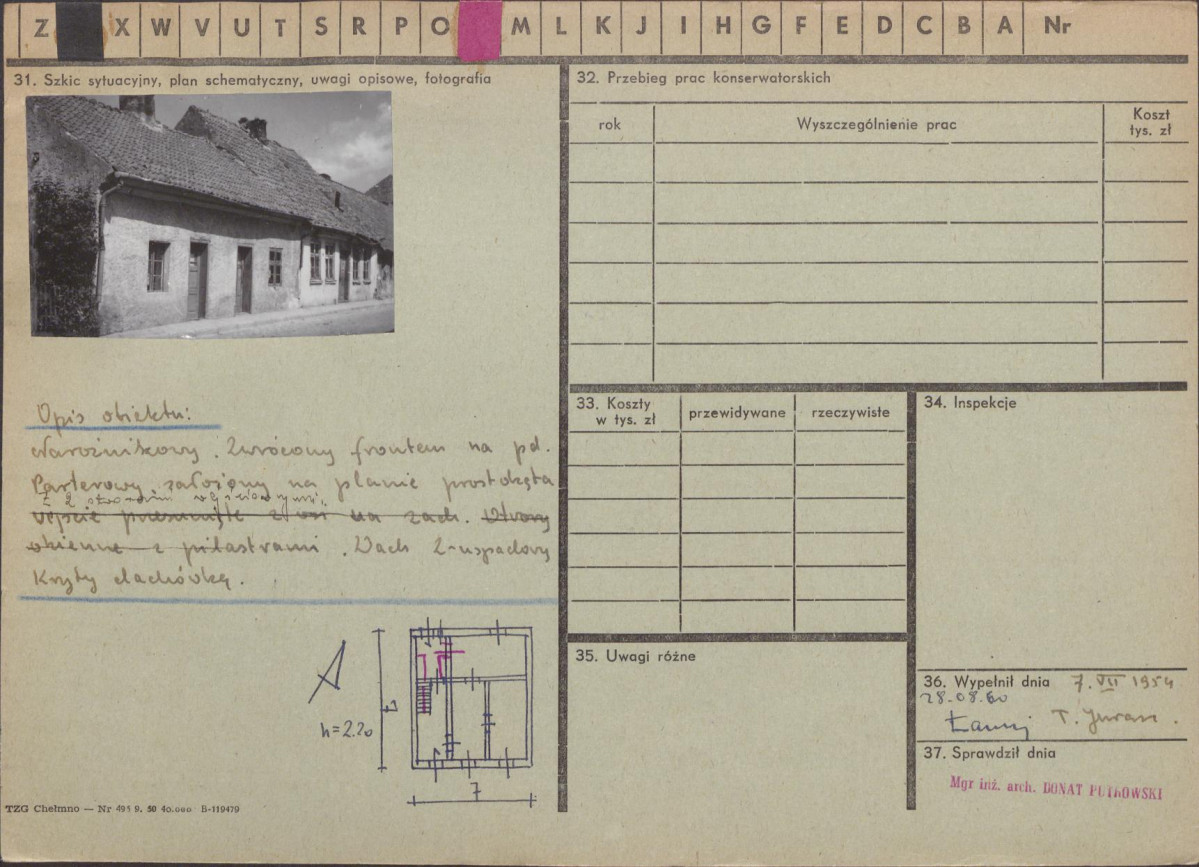 Z X W V U T S R P O M L K J I H G F E D C B A Nr
31. Szkic sytuacyjny, plan schematyczny, uwagi opisowe, fotografia
Opis obiektu:
Narożnikowy. Zwrócony frontem na pd.
Parterowy, założony na planie prostokąta
z 2 otworami wejściowymi.
wejście przesunięte z osi na zach. Otwory
okienne z pilastrami. Dach 2-uspadowy
Kryty dachówką.
h=2.20
7
TZG Chełmno — Nr 495 9. 50 40.000 B-119479
32. Przebieg prac konserwatorskich
rok Wyszczególnienie prac Koszt
tys. zł
33. Koszty
w tys. zł przewidywane rzeczywiste
34. Inspekcje
35. Uwagi różne
36. Wypełnił dnia 7. VII 1954
28.08.60
T.
37. Sprawdził dnia
Mgr inż. arch. DONAT PUTKOWSKI